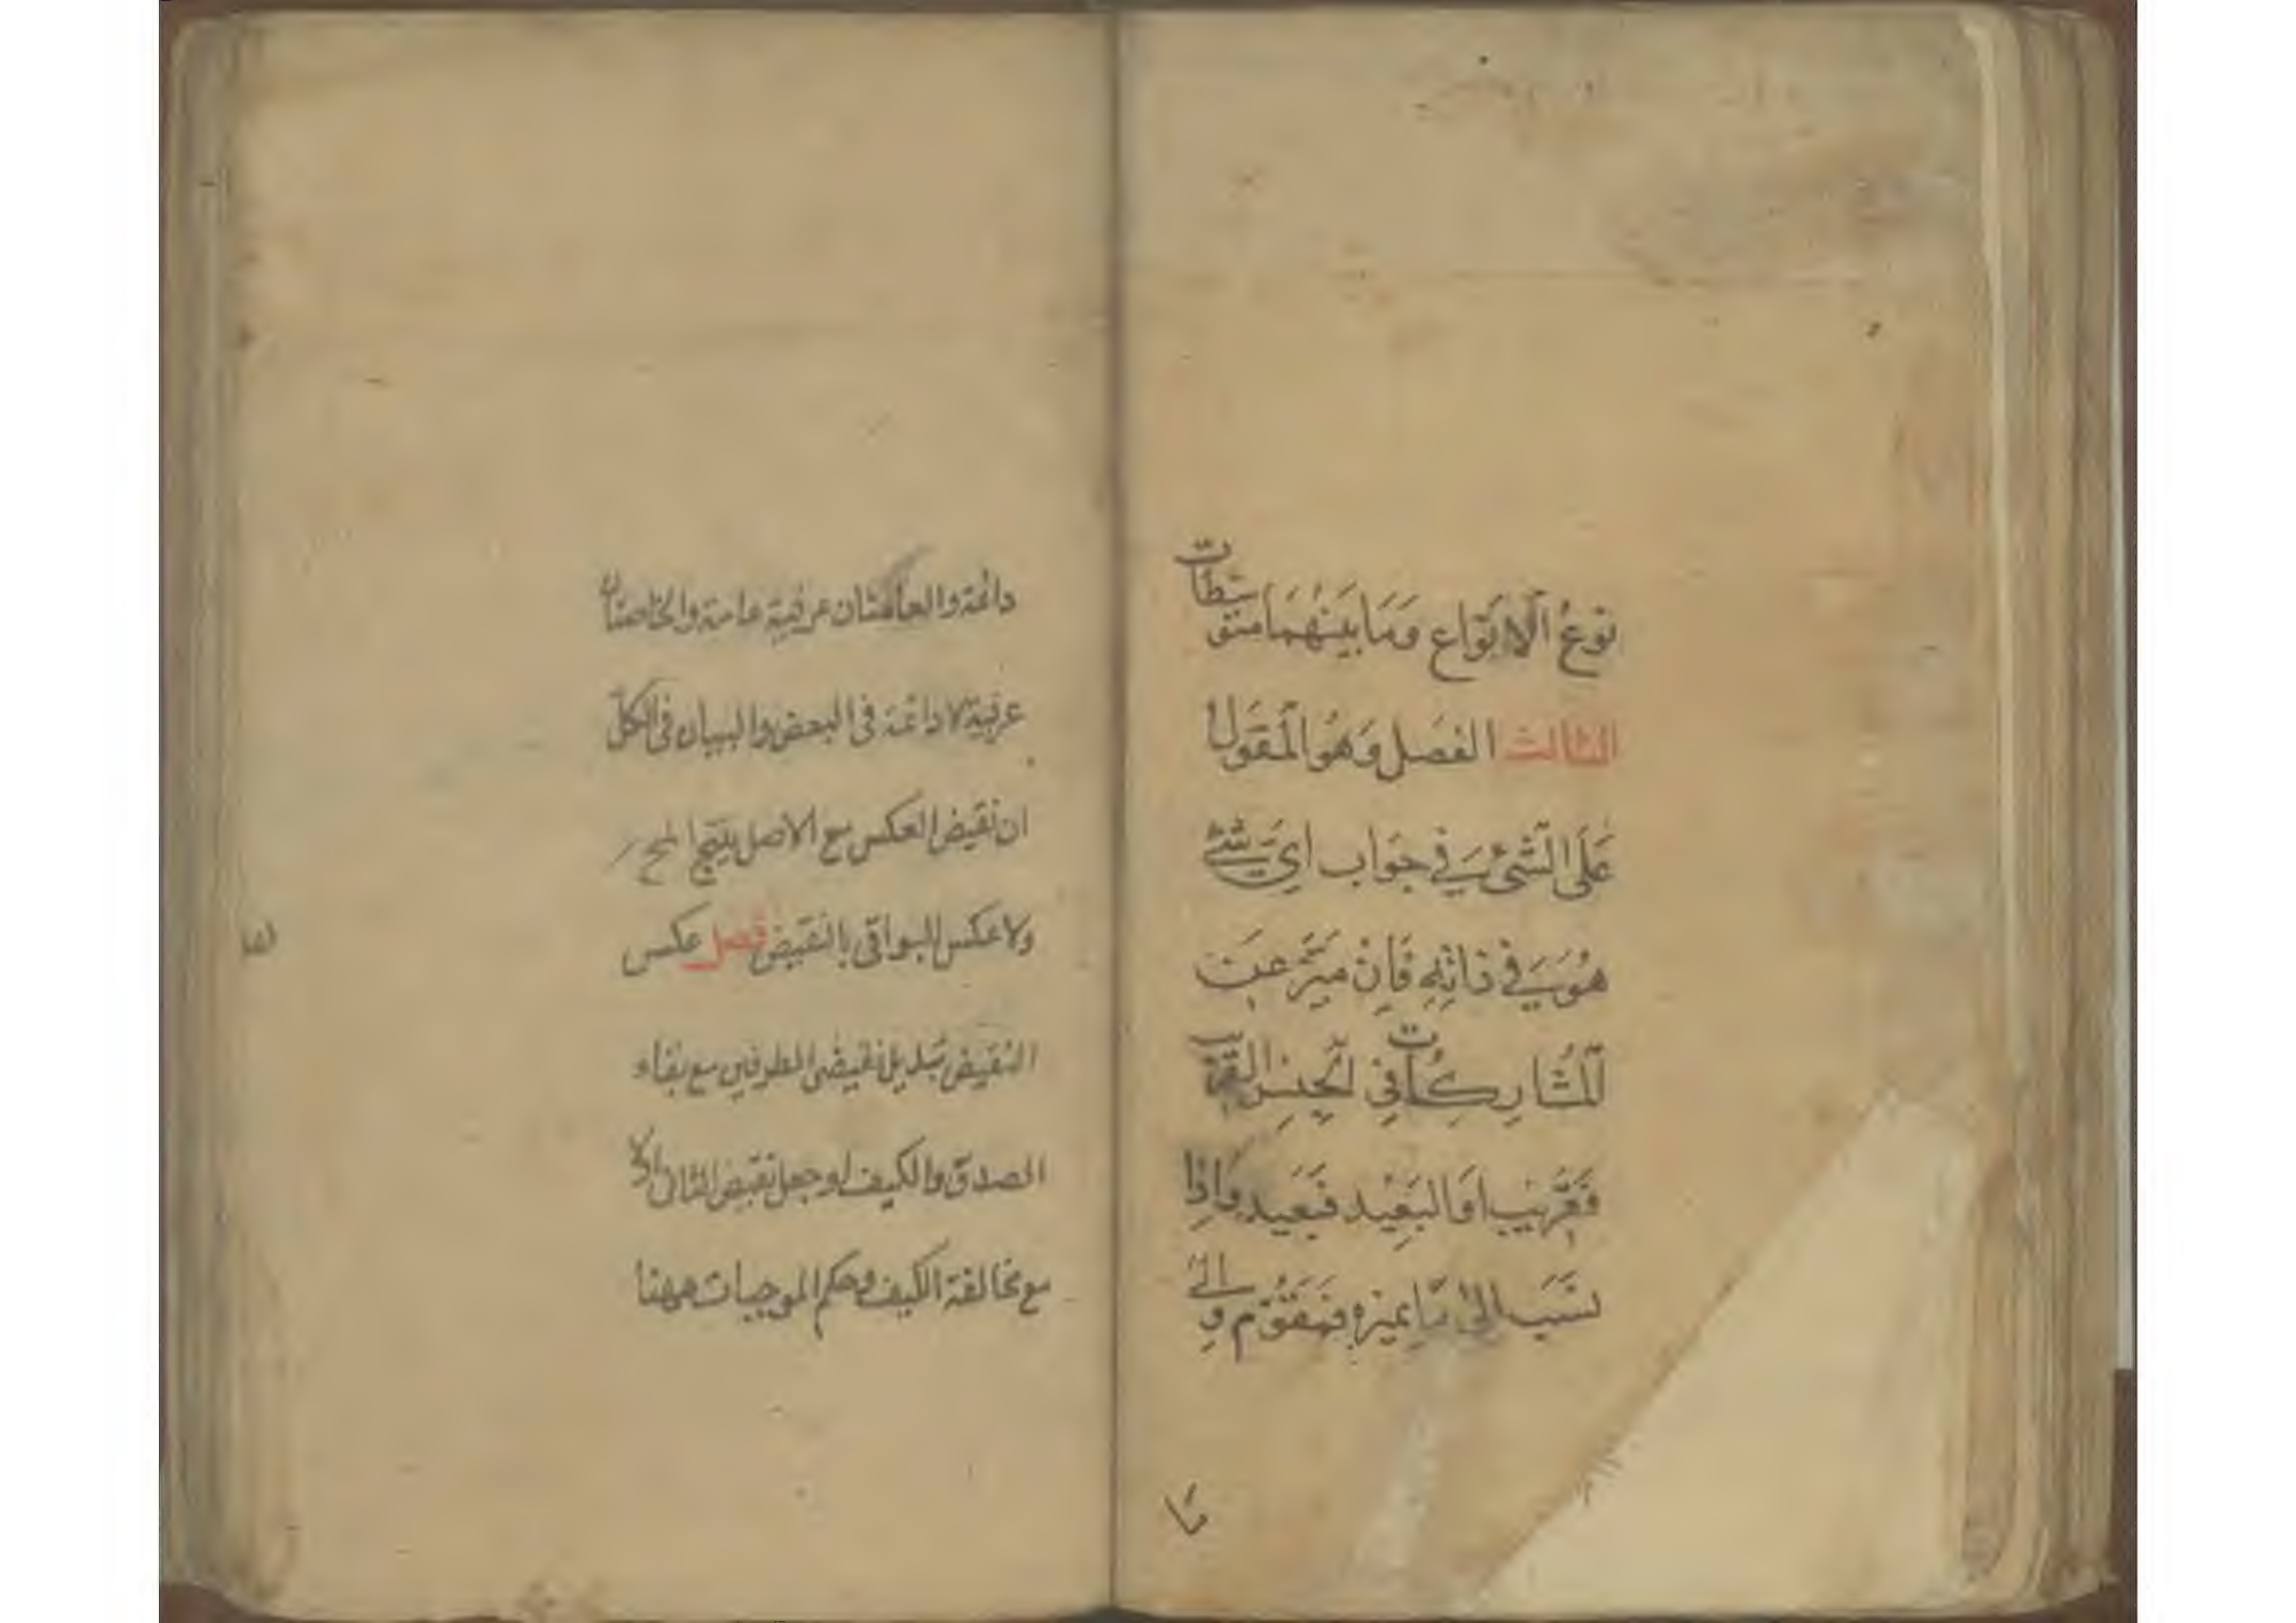 نَوعُ الاَنوَاع وَمَا بَينَهُمَا متوسّطات
الثالث الفصَل وَهُوَ المَقوُل
عَلَى الشّئ في جوَاب ايّ شئ
هُوَ في ذاتِهِ فَاِنْ ميّز عَن
المُشاركات في الجِنسِ القريب
فَقَرِيب اَوَ البَعِيْد فبَعَيد وَاِذا
نسَبَ الىٰ مَا يميزه فمَقوّم وَالى
مَا
دائمة والعامتان عرفية عامة والخاصتان
عرفية لا دائمة فى البعض والبيان فى الكل
ان نقيض العكس مع الاصل ينتج المح
ولا عكس للبواقى بالنقيض فصل عكس
النقيض تبديل نقيضى الطرفين مع بقاء
الصدق والكيف او جعل نقيض الثانى اولا
مع مخالفة الكيف وحكم الموجبات ههنا